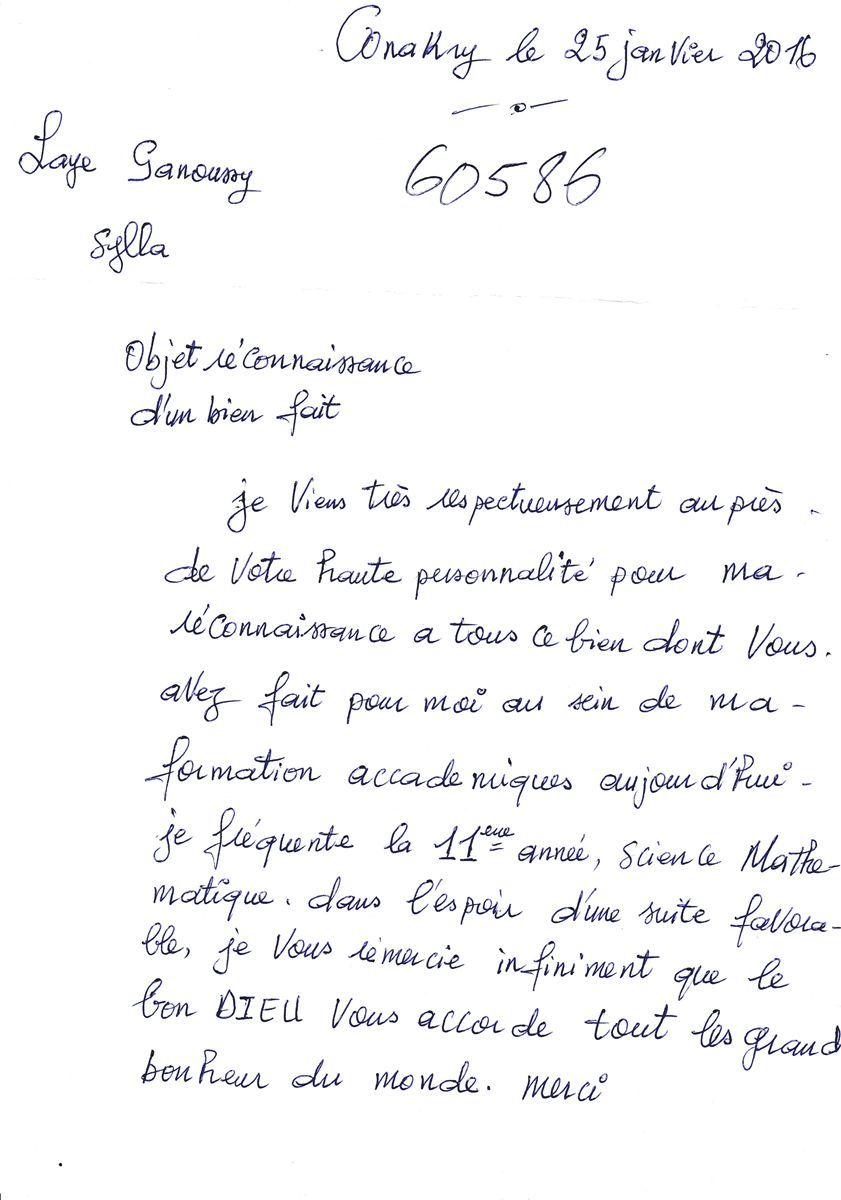 Conakry le 25 janvier 2016
Laye Ganoussy
60586
Sylla
Objet réconnaissance
d'un bien fait
je Viens très respectueusement au près
de Votre haute personnalité pour ma
réconnaissance a tous ce bien dont Vous
avez fait pour moi au sein de ma
formation accademiques aujourd'hui
je fréquente la 11ème année, Science Mathe-
matique. dans l'espoir d'une suite favora-
ble, je Vous rémercie infiniment que le
bon DIEU Vous accorde tout les grand
bonheur du monde. merci